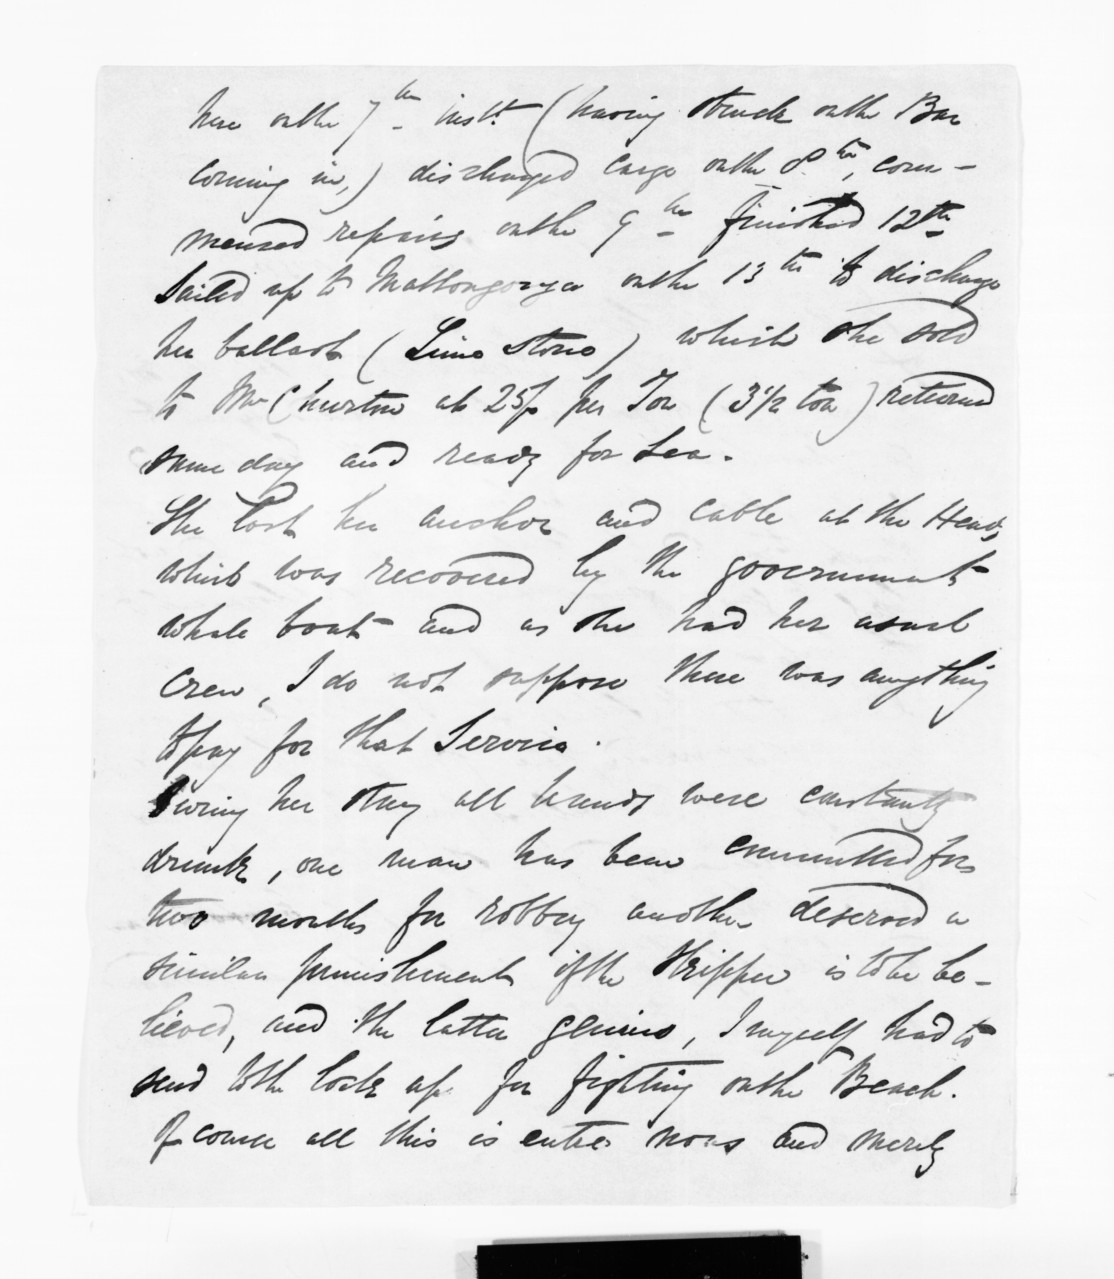 here on the 7th inst. (having struck on the Bar
coming in,) discharged cargo on the 8th, com-
menced repairs on the 9th finished 12th
Sailed up to Mattongonga on the 13th to discharge
her ballast (Lime Stone) which she sold
to Mr Churton at 25/ per Ton (3 1/2 ton) returned
same day and ready for Sea.
She lost her anchor and cable at the Heads
which was recovered by the government
whale boat and as she had her usual
Crew, I do not suppose there was anything
to pay for that Service.
During her stay all hands were constantly
drunk, one man has been committed for
two months for robbery another deserved a
similar punishment if the Skipper is to be be-
lieved, and the latter genius, I myself had to
send to the lock up for fighting on the Beach.
Of course all this is entre nous and merely